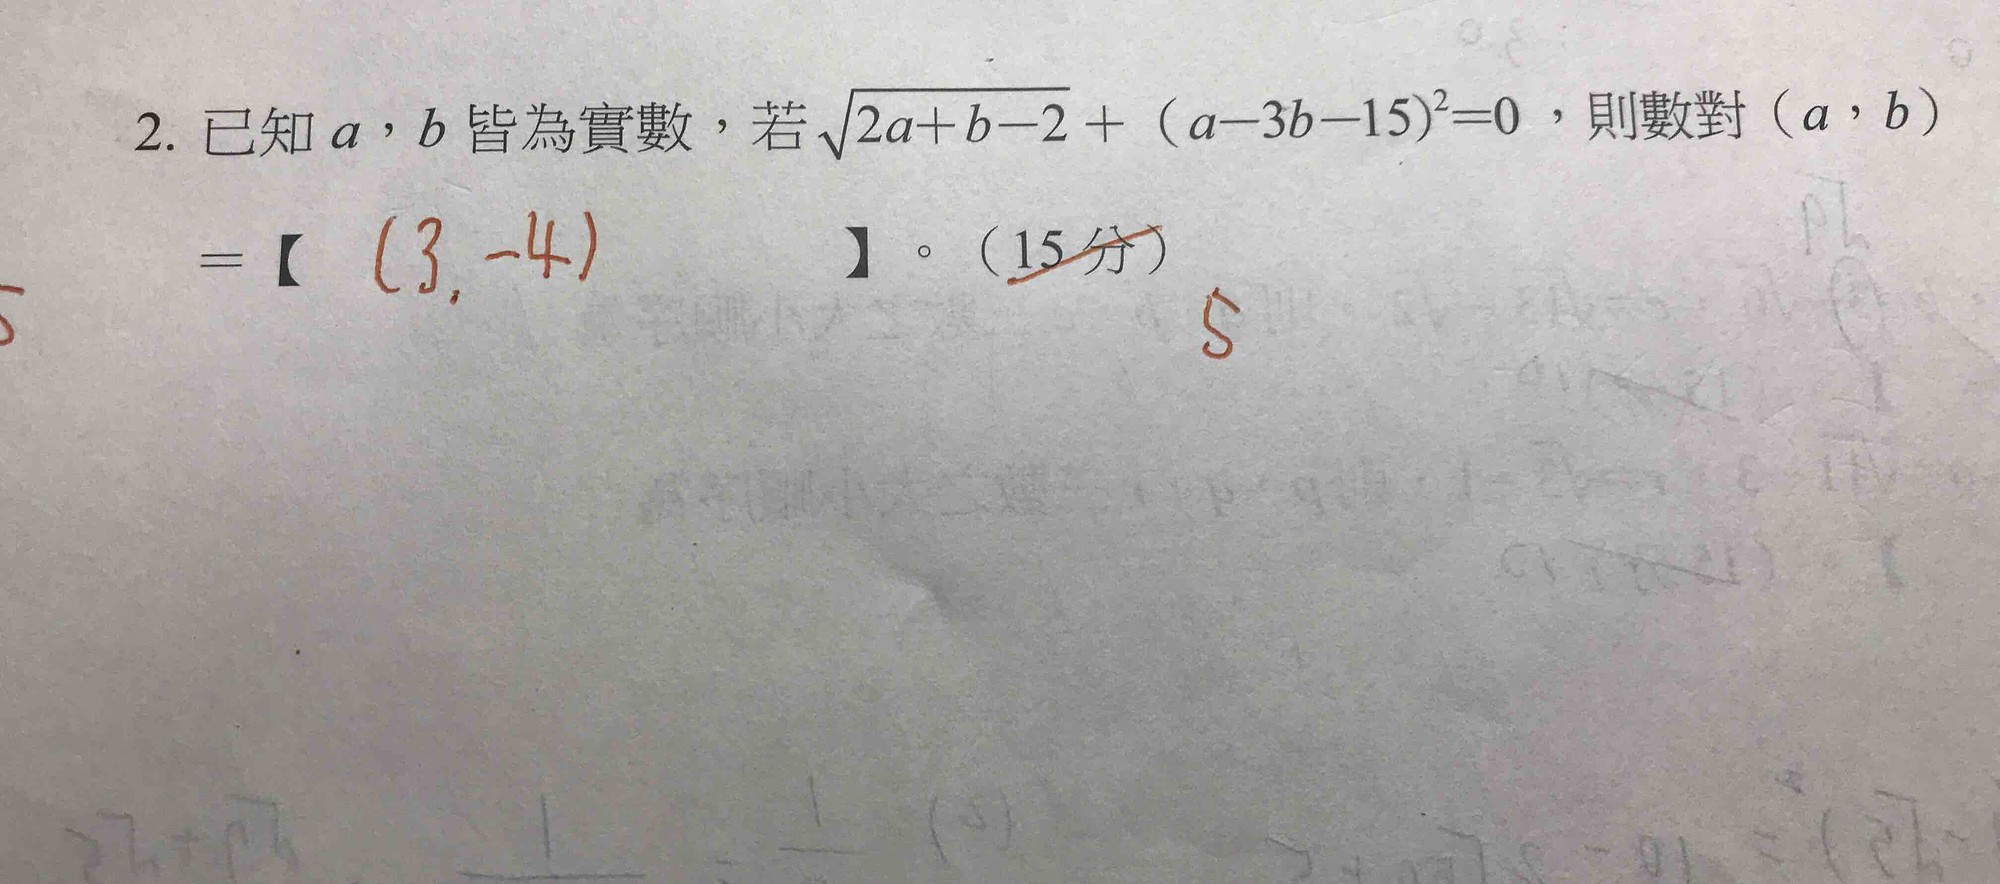 2. 已知 a，b 皆為實數，若 √(2a+b−2) + （a−3b−15)²=0，則數對（a，b）
=【 (3, -4) 】。（15 分）
5